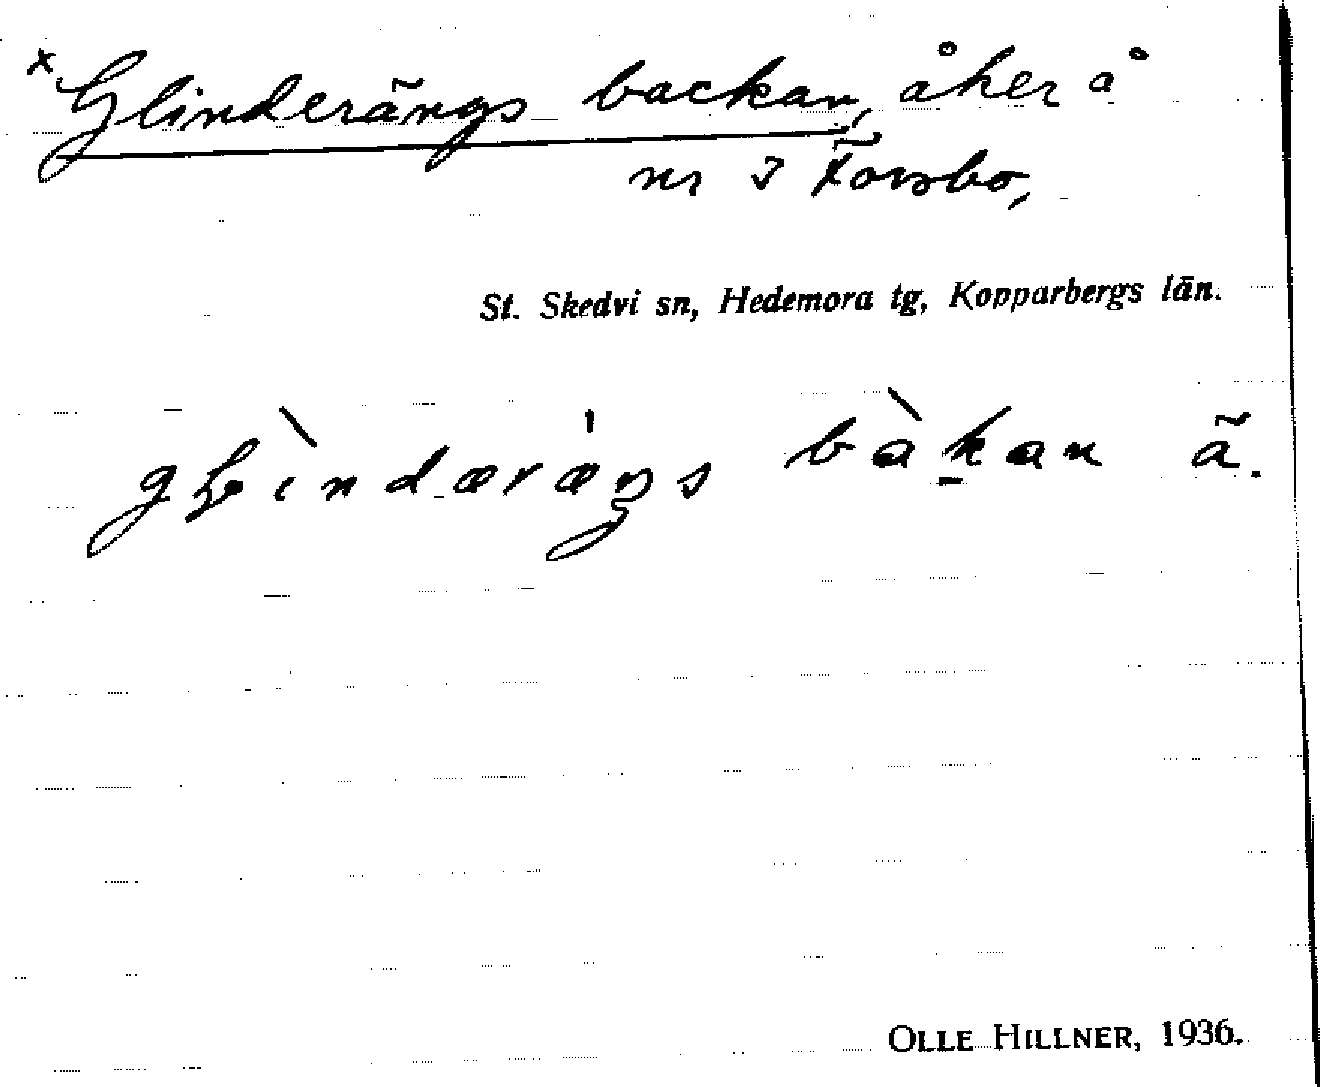 x Glinderängs backan, åker å
nr 3 Forsbo,
St. Skedvi sn, Hedemora tg, Kopparbergs län.
bàkan ã.
OLLE HILLNER, 1936.